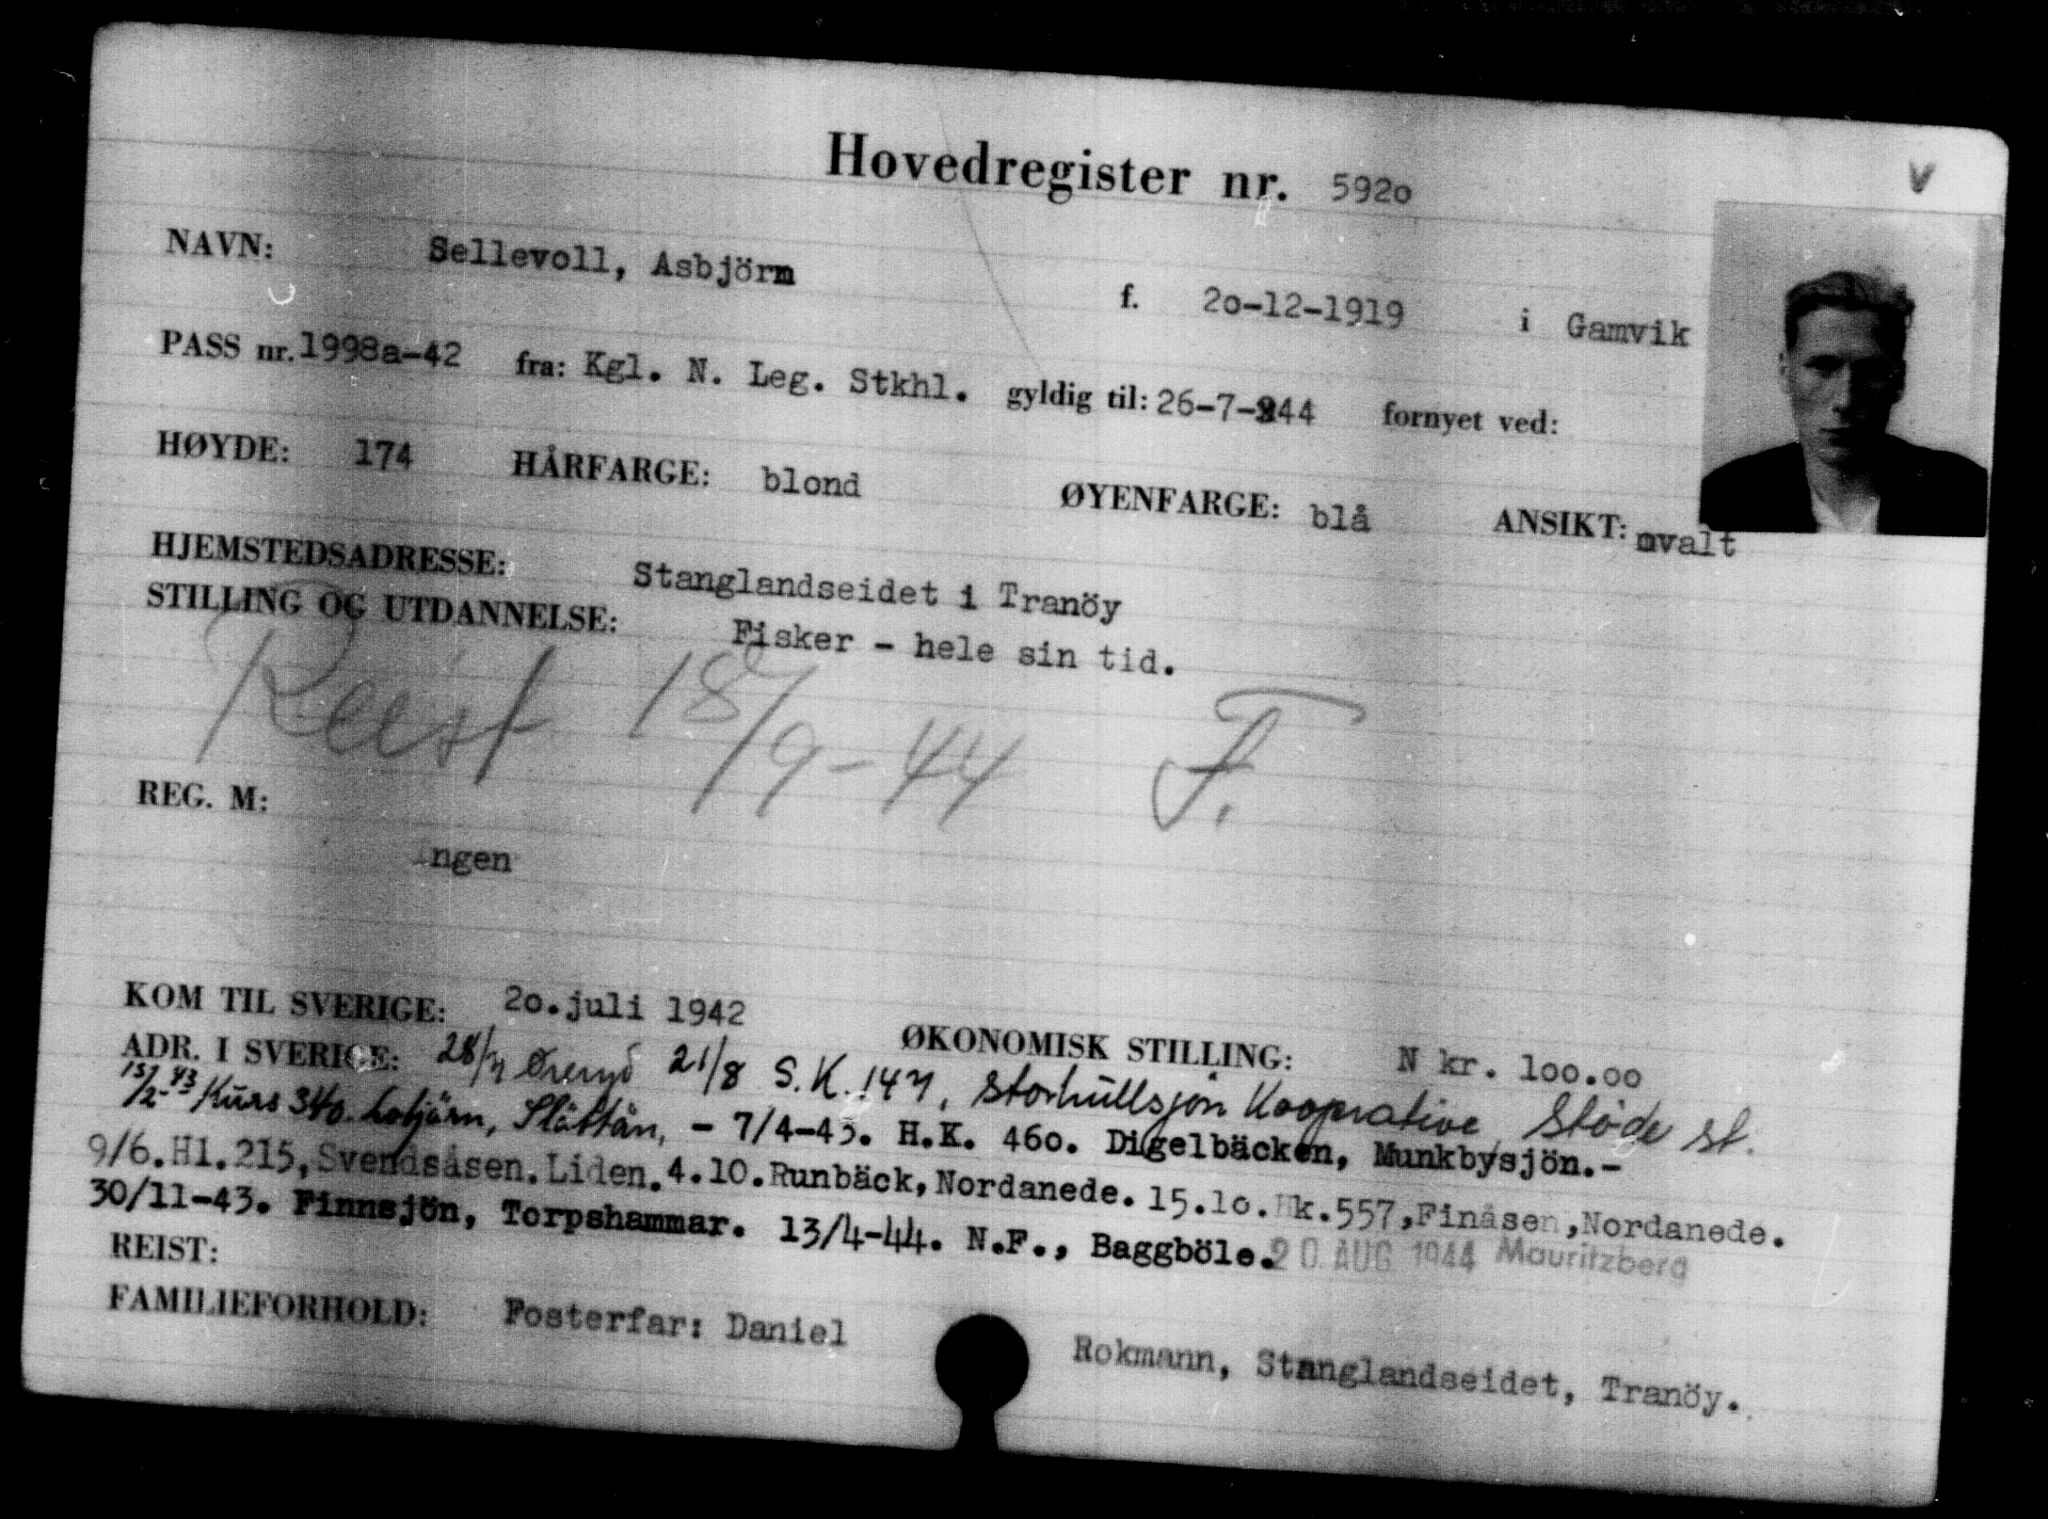 Hovedregister nr. 592o
V
NAVN: Sellevoll, Asbjörn f. 2o-12-1919 i Gamvik
PASS nr. 1998a-42 fra: Kgl. N. Leg. Stkhl. gyldig til: 26-7-44 fornyet ved:
HØYDE: 174 HÅRFARGE: blond ØYENFARGE: blå ANSIKT: ovalt
HJEMSTEDSADRESSE: Stanglandseidet i Tranöy
STILLING OG UTDANNELSE: Fisker - hele sin tid.
Reist 18/9-44 F.
REG. M:
Ingen
KOM TIL SVERIGE: 2o.juli 1942 ØKONOMISK STILLING: N kr. 1oo.oo
ADR. I SVERIGE: 28/7 Øreryd 21/8 S.K. 147, Storhullsjön Kooperative Støde st.
15/2-43 Kurs 340. Lotjärn, Slättån, - 7/4-43. H.K. 46o. Digelbäcken, Munkbysjön.-
9/6.Hl.215,Svendsåsen.Liden.4.10.Runbäck,Nordanede. 15.1o.Hk.557,Finåsen,Nordanede.
30/11-43. Finnsjön, Torpshammar. 13/4-44. N.F., Baggböle. 20 AUG 1944 Mauritzberg
REIST:
FAMILIEFORHOLD: Fosterfar: Daniel Rokmann, Stanglandseidet, Tranöy.